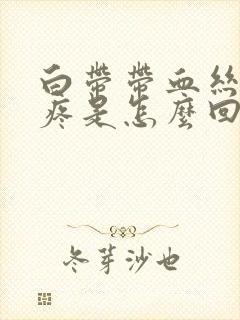 白帶帶血絲
疼是怎麼回
冬芽沙也